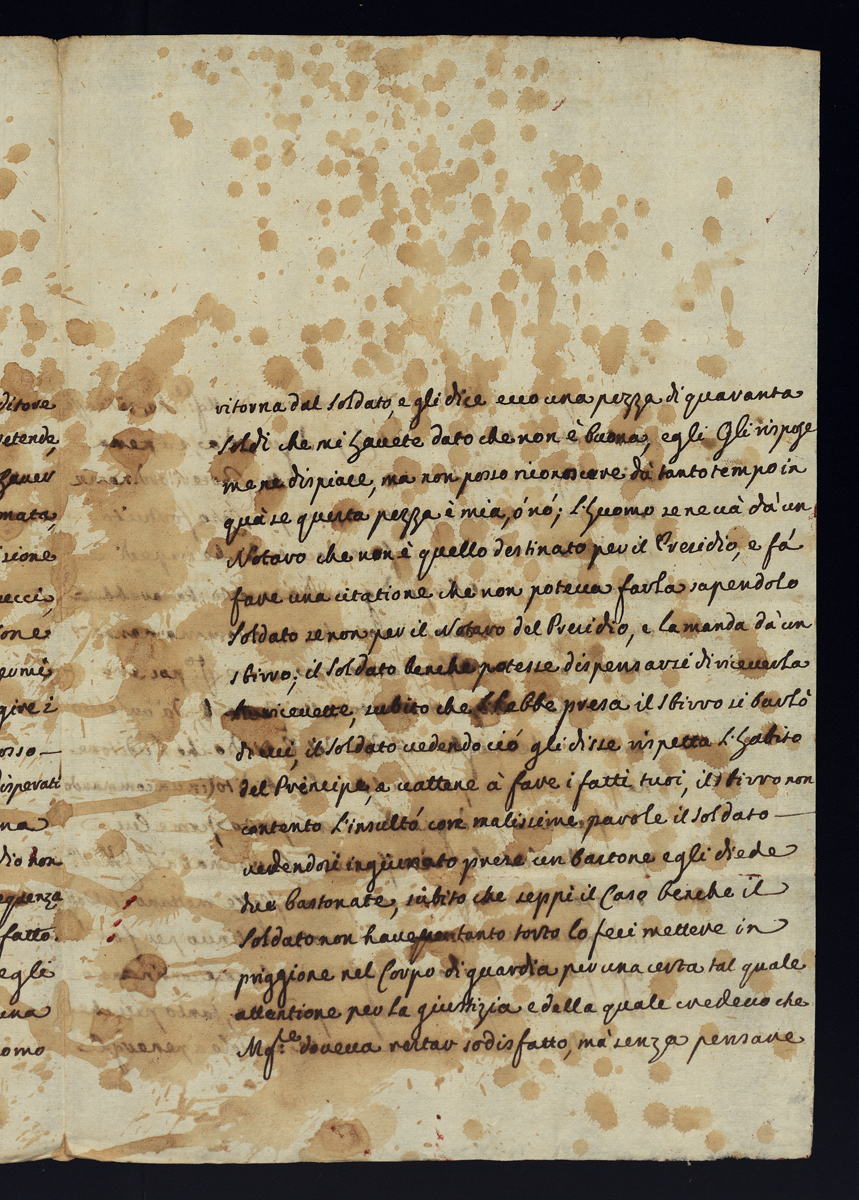 ditore
retende,
haver
mata,
isione
ucci,
ione
gire i
osso —
disperati
na
dio non
equenza
fatto.
egli
una
omo
ritorna dal soldato, e gli dice ecco una pezza di quaranta
soldi che mi havete dato che non è buona, egli Gli rispose
me ne dispiace, ma non posso riconoscere dà tanto tempo in
quà se questa pezza è mia, ó nó; L'huomo se ne và dà un
Notaro che non è quello destinato per il Presidio, e fá
fare una citatione che non poteva farla sapendolo
soldato se non per il Notaro del Presidio, e la manda dà un
sbirro; il soldato benche potesse dispensarsi di riceverla
la ricevette, subito che l'hebbe presa il sbirro si burló
di lui, il soldato vedendo ció gli disse rispetta L'habito
del Principe, e vattene à fare i fatti tuoi, il sbirro non
contento L'insultó con malissime parole il soldato —
vedendosi ingiuriato prese un bastone e gli diede
due bastonate, subito che seppi il Caso benche il
soldato non havesse tanto torto lo feci mettere in
priggione nel Corpo di guardia per una certa tal quale
attentione per la giustizia e della quale credevo che
Mgr.e doveva restar sodisfatto, mà senza pensare